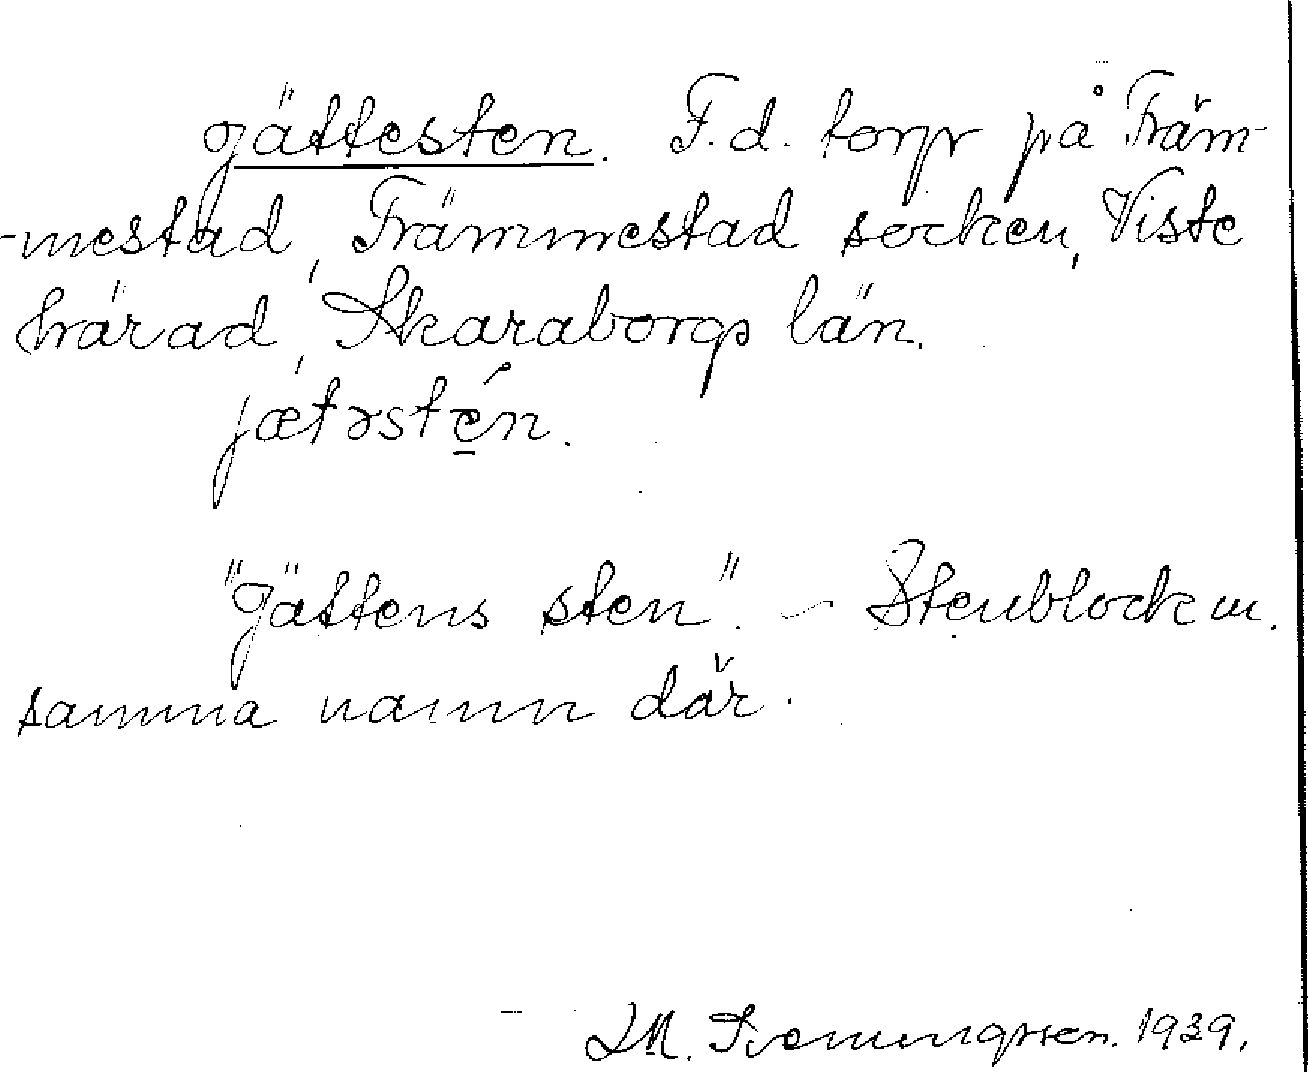 Gättesten. F.d. torp på Främ-
-mestad, Främmestad socken, Viste
härad, Skaraborgs län.
jætəstén.
"Gättens sten". - Stenblock m.
samma namn där.
1939.